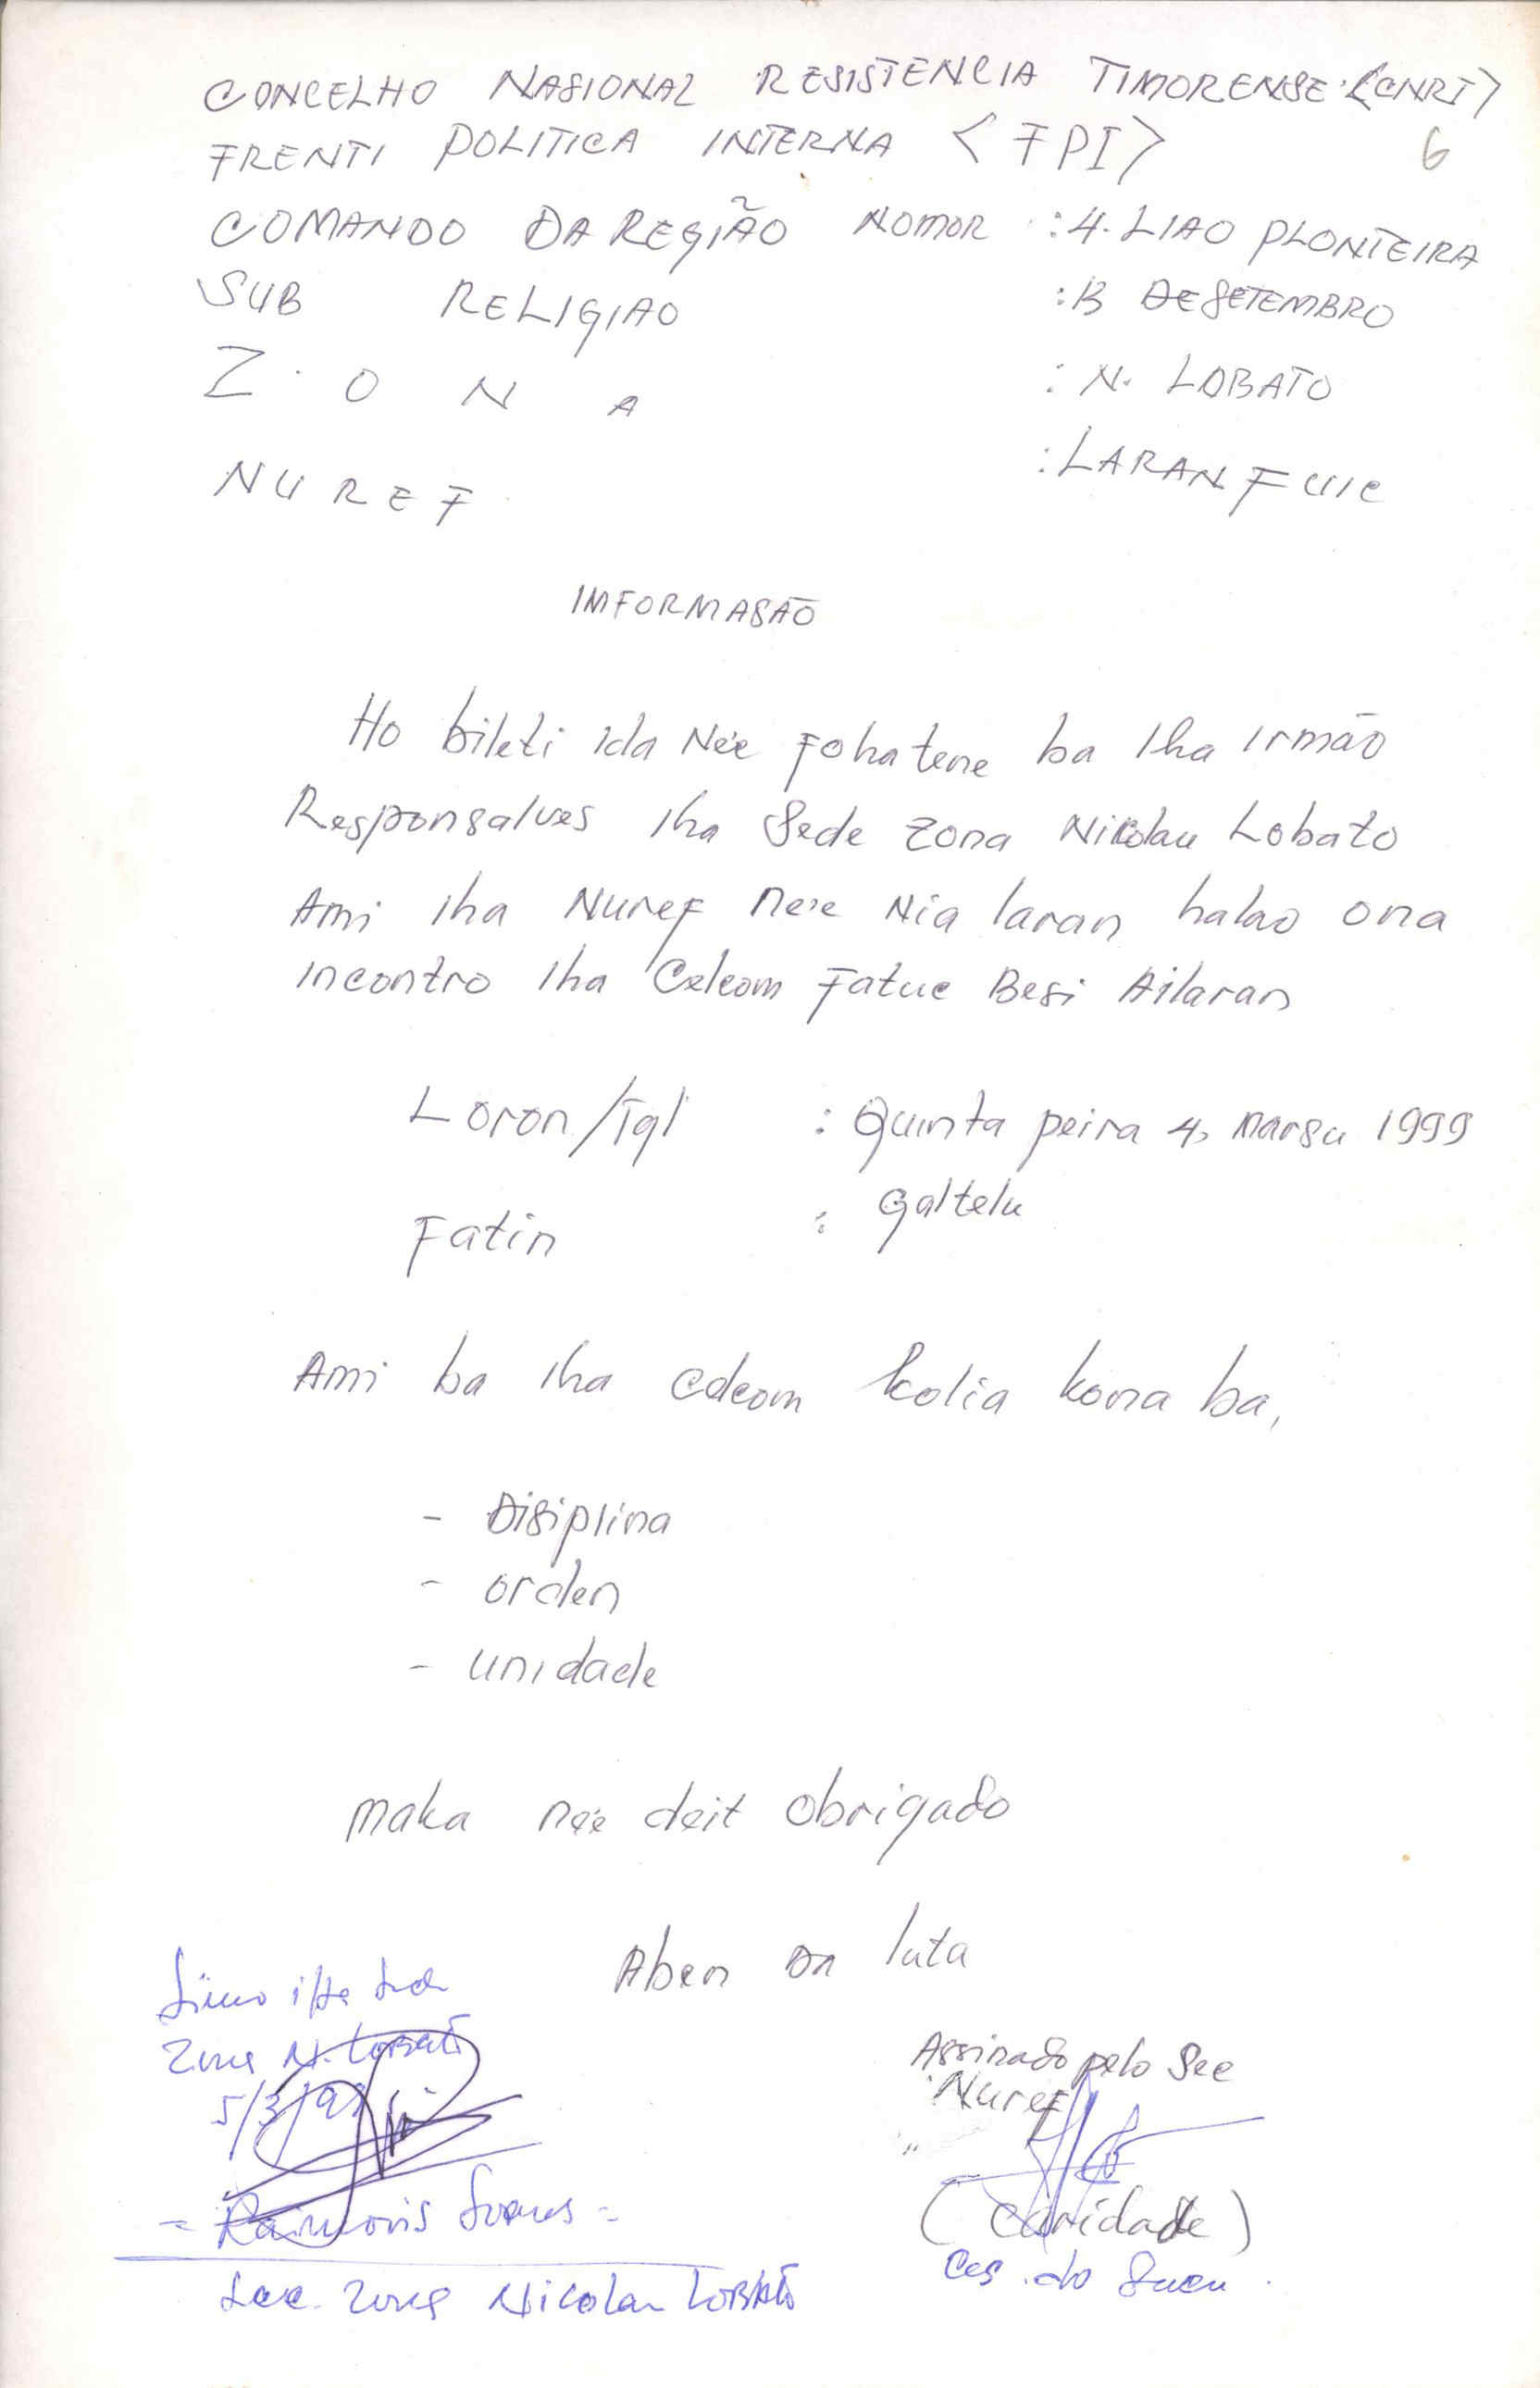 CONCELHO NASIONAL RESISTENCIA TIMORENSE <CNRT>
FRENTI POLITICA INTERNA <FPI>
6
COMANDO DA REGIÃO NOMOR : 4. LIAO PLONTEIRA
SUB RELIGIAO : B DESETEMBRO
Z O N A : N. LOBATO
NUREF : LARAN FUIC
IMFORMASÃO
Ho bileti ida Ne'e Fohatene ba Iha Irmão
Responsalves Iha Sede Zona Nikolau Lobato
Ami Iha Nuref ne'e Nia laran halao ona
Incontro Iha Celcom Fatuc Besi Ailaran
Loron/Tgl : Quinta peira 4, Marsu 1999
Fatin : Galtelu
Ami ba Iha Celcom kolia kona ba,
- Disiplina
- orden
- unidade
Maka ne'e deit obrigado
Aben on luta
Simo iha
Zona N. Lobato
5/3/99
Assinado pelo Sec
Nuref
(Caridade)
= Soares =
Sec. Zona Nicolau Lobato
do